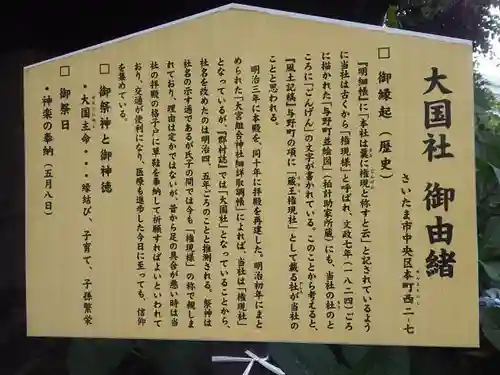 大国社 御由緒
さいたま市中央区本町西二-七
□ 御縁起(歴史)
『明細帳』に「本社は襄に権現と称すと云」と記されているよう
に当社は古くから「権現様」と呼ばれ、文政七年(一八二四)ごろ
に描かれた「与野町並絵図」(柏計助家所蔵)にも、当社の社のと
ころに「ごんげん」の文字が書かれている。このことから考えると、
『風土記稿』与野町の項に「蔵王権現社」として載る社が当社の
ことと思われる。
明治三年に本殿を、同十年に拝殿を再建した。明治初年にまと
められた「大宮組合神社細詳取調帳」によれば、当社は「権現社」
となっているが『郡村誌』では「大国社」となっていることから、
社名を改めたのは明治四、五年ごろのことと推測される。祭神は
社名の示す通りであるが氏子の間では今も「権現様」の称で親しま
れており、理由は定かではないが、昔から足の具合が悪い時は当
社の拝殿の格子戸に草鞋を奉納して祈願すればよいといわれて
おり、交通が便利になり、医療も進歩した今日に至っても、信仰
を集めている。
□ 御祭神と御神徳
・大国主命・・・縁結び、子育て、子孫繁栄
□ 御祭日
・神楽の奉納(五月八日)